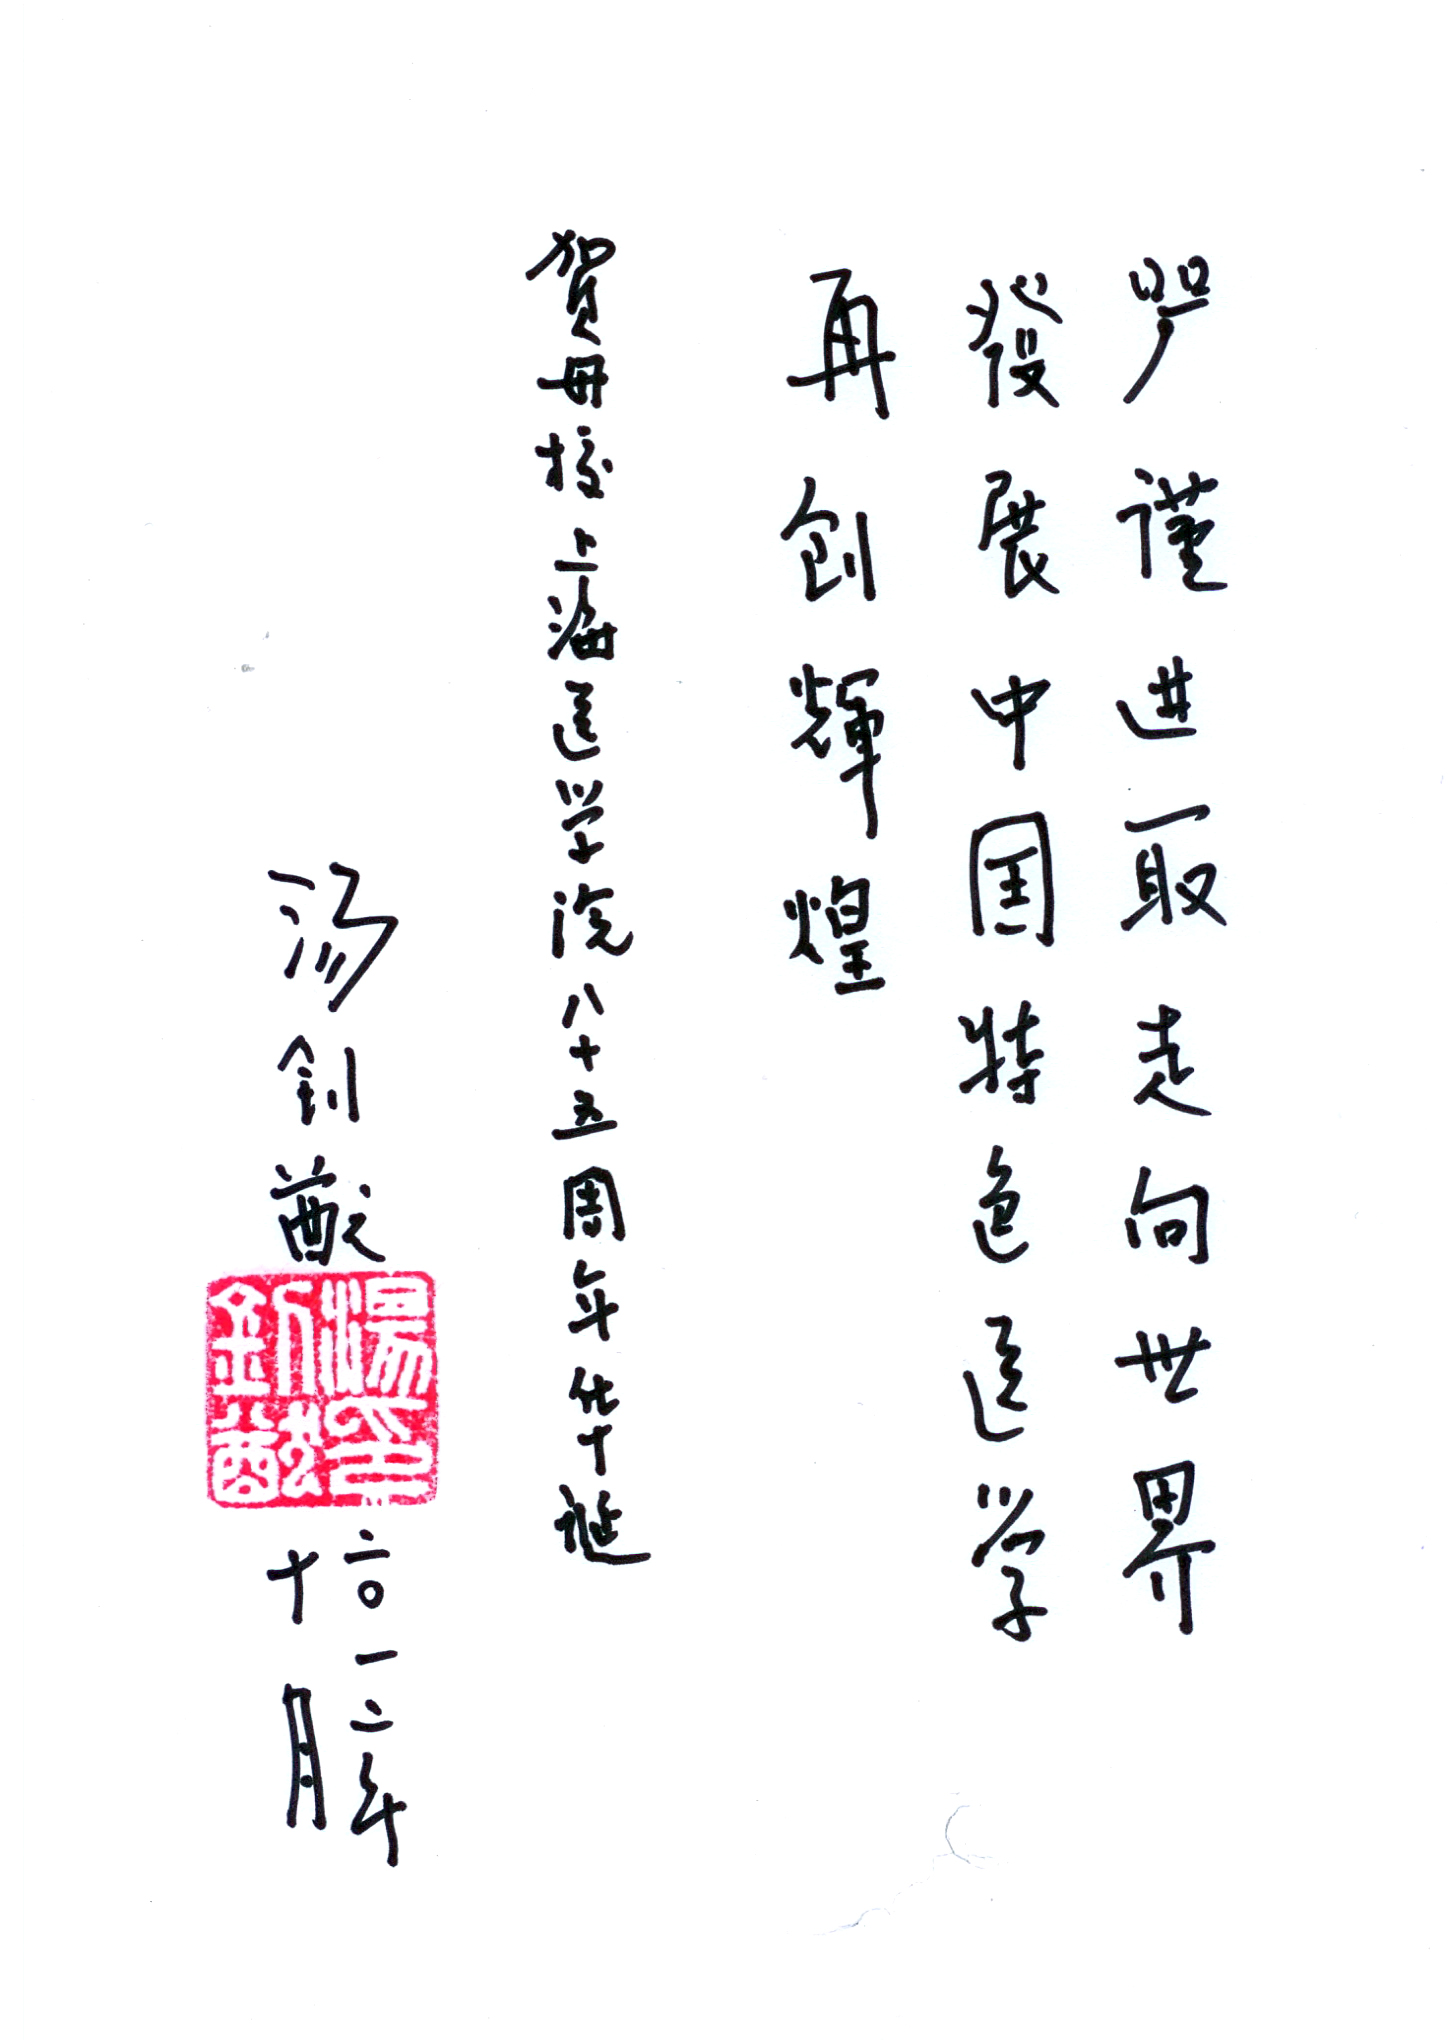 严谨进取走向世界
發展中国特色医学
再创輝煌
贺母校上海医学院八十五周年华诞
汤钊猷
湯钊猷印
二〇一二年
十月